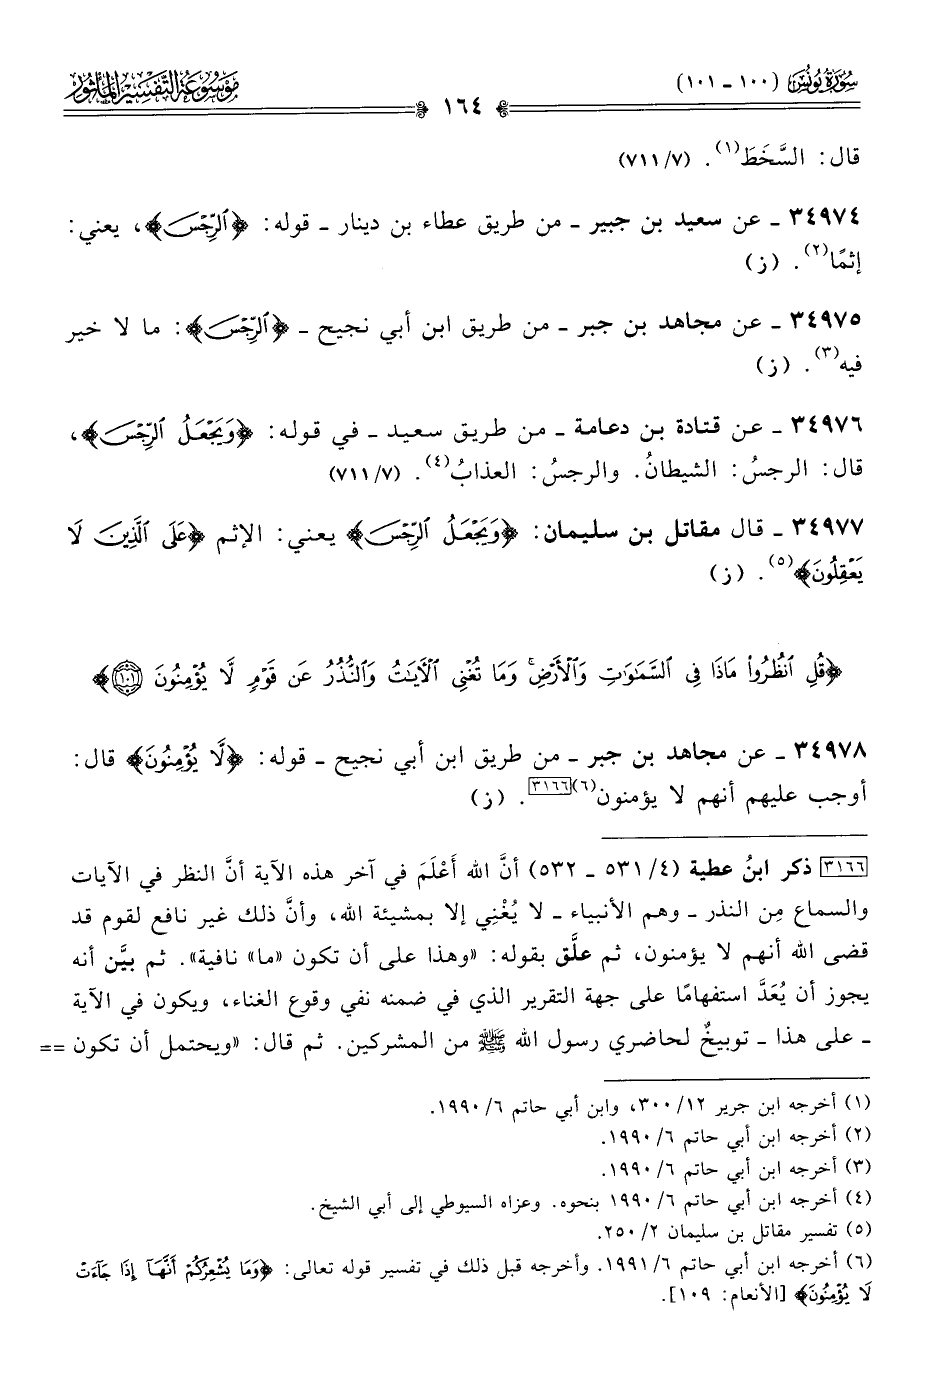 سُورَةُ يُونُسَ (١٠٠ - ١٠١)
١٦٤
مَوْسُوعَةُ التَّفْسِيرِ المَأْثُورِ
قال: السَّخَطَ(١). (٧١١/٧)
٣٤٩٧٤ ـ عن سعيد بن جبير ـ من طريق عطاء بن دينار ـ قوله: ﴿ٱلرِّجْسَ﴾، يعني:
إثمًا(٢). (ز)
٣٤٩٧٥ ـ عن مجاهد بن جبر ـ من طريق ابن أبي نجيح ـ ﴿ٱلرِّجْسَ﴾: ما لا خير
فيه(٣). (ز)
٣٤٩٧٦ ـ عن قتادة بن دعامة ـ من طريق سعيد ـ في قوله: ﴿وَيَجْعَلُ ٱلرِّجْسَ﴾،
قال: الرجسُ: الشيطانُ. والرجسُ: العذابُ(٤). (٧١١/٧)
٣٤٩٧٧ ـ قال مقاتل بن سليمان: ﴿وَيَجْعَلُ ٱلرِّجْسَ﴾ يعني: الإثم ﴿عَلَى ٱلَّذِينَ لَا
يَعْقِلُونَ﴾(٥). (ز)
﴿قُلِ ٱنظُرُوا۟ مَاذَا فِى ٱلسَّمَٰوَٰتِ وَٱلْأَرْضِ ۚ وَمَا تُغْنِى ٱلْءَايَٰتُ وَٱلنُّذُرُ عَن قَوْمٍ لَّا يُؤْمِنُونَ ١٠١﴾
٣٤٩٧٨ ـ عن مجاهد بن جبر ـ من طريق ابن أبي نجيح ـ قوله: ﴿لَّا يُؤْمِنُونَ﴾ قال:
أوجب عليهم أنهم لا يؤمنون(٦)[٣١٦٦]. (ز)
[٣١٦٦] ذكر ابنُ عطية (٤/ ٥٣١ ـ ٥٣٢) أنَّ الله أَعْلَمَ في آخر هذه الآية أنَّ النظر في الآيات
والسماع مِن النذر ـ وهم الأنبياء ـ لا يُغْنِي إلا بمشيئة الله، وأنَّ ذلك غير نافع لقوم قد
قضى الله أنهم لا يؤمنون، ثم علَّق بقوله: «وهذا على أن تكون «ما» نافية». ثم بيَّن أنه
يجوز أن يُعَدَّ استفهامًا على جهة التقرير الذي في ضمنه نفي وقوع الغناء، ويكون في الآية
ـ على هذا ـ توبيخٌ لحاضري رسول الله ﷺ من المشركين. ثم قال: «ويحتمل أن تكون ==
(١) أخرجه ابن جرير ١٢/ ٣٠٠، وابن أبي حاتم ٦/ ١٩٩٠.
(٢) أخرجه ابن أبي حاتم ٦/ ١٩٩٠.
(٣) أخرجه ابن أبي حاتم ٦/ ١٩٩٠.
(٤) أخرجه ابن أبي حاتم ٦/ ١٩٩٠ بنحوه. وعزاه السيوطي إلى أبي الشيخ.
(٥) تفسير مقاتل بن سليمان ٢/ ٢٥٠.
(٦) أخرجه ابن أبي حاتم ٦/ ١٩٩١. وأخرجه قبل ذلك في تفسير قوله تعالى: ﴿وَمَا يُشْعِرُكُمْ أَنَّهَآ إِذَا جَآءَتْ
لَا يُؤْمِنُونَ﴾ [الأنعام: ١٠٩].